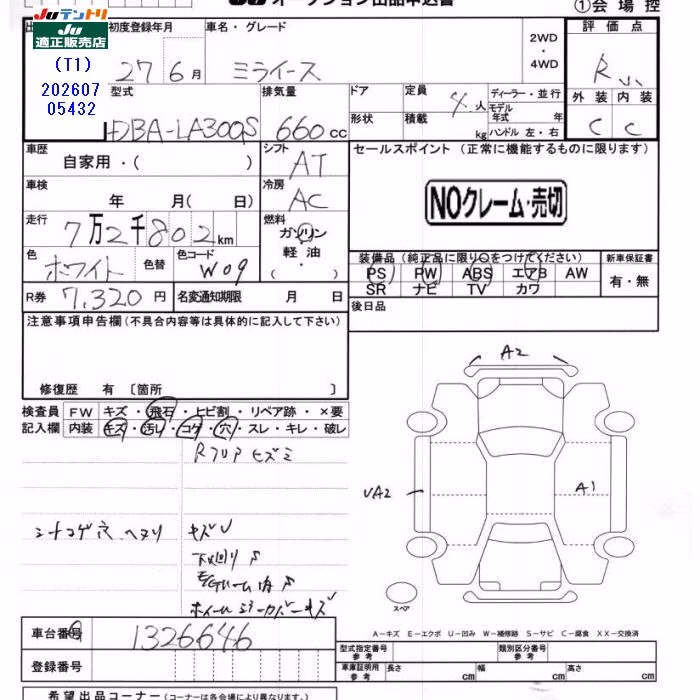 JUテントリ
JU オークション出品申込書
①会場控
JU
適正販売店
(T1)
202607
05432
初度登録年月
27 6月
車名・グレード
ミライース
2WD
・
4WD
評価点
R
外装 内装
C C
型式
DBA-LA300S
排気量
660cc
ドア
形状
定員
4人
積載
kg
ディーラー・並行
モデル
年式 年
ハンドル 左・右
車歴
自家用・( )
シフト
AT
セールスポイント (正常に機能するものに限ります)
NOクレーム・売切
車検
年 月( 日)
冷房
AC
走行
7万2千802km
燃料
ガソリン
軽油
( ・ )
色
ホワイト
色替
色コード
W09
装備品(純正品に限り○をつけてください)
新車保証書
PS PW ABS エアB AW
SR ナビ TV カワ
有・無
R券 7,320円
名変通知期限 月 日
後日品
注意事項申告欄(不具合内容等は具体的に記入して下さい)
修復歴 有〔箇所 〕
検査員
記入欄
FW キズ・飛石・ヒビ割・リペア跡・×要
内装 キズ・汚レ・コゲ・穴・スレ・キレ・破レ
Rフロアヒズミ
シートコゲ穴 ヘタリ
キズU
下廻りサ
ホイールキズ
A2
UA2
A1
スペア
A－キズ E－エクボ U－凹み W－補修跡 S－サビ C－腐食 XX－交換済
車台番号
1326646
登録番号
型式指定番号
参考
類別区分番号
参考
車庫証明用
参考
長さ cm
幅 cm
高さ cm
希望出品コーナー(コーナーは各会場により異なります。)